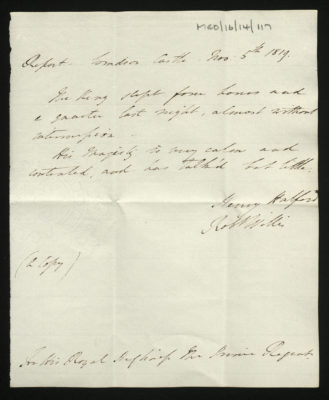 MED/16/14/117
Report. Windsor Castle Nov. 5th 1819.
The King slept four hours and
a quarter last night, almost without
interruption.
His Majesty is very calm and
contented, and has talked but little.
Henry Halford
Robt Willis
(a Copy)
For His Royal Highness The Prince Regent